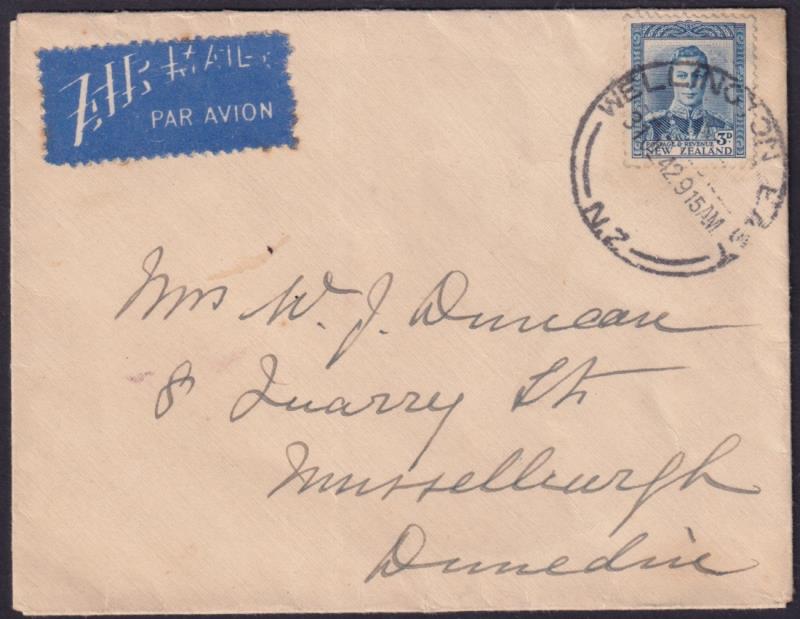 AIR MAIL
PAR AVION
POSTAGE & REVENUE 3D
NEW ZEALAND
WELLINGTON
42.915AM
N.Z.
Mrs W. J. Duncan
8 Quarry St
Musselburgh
Dunedin